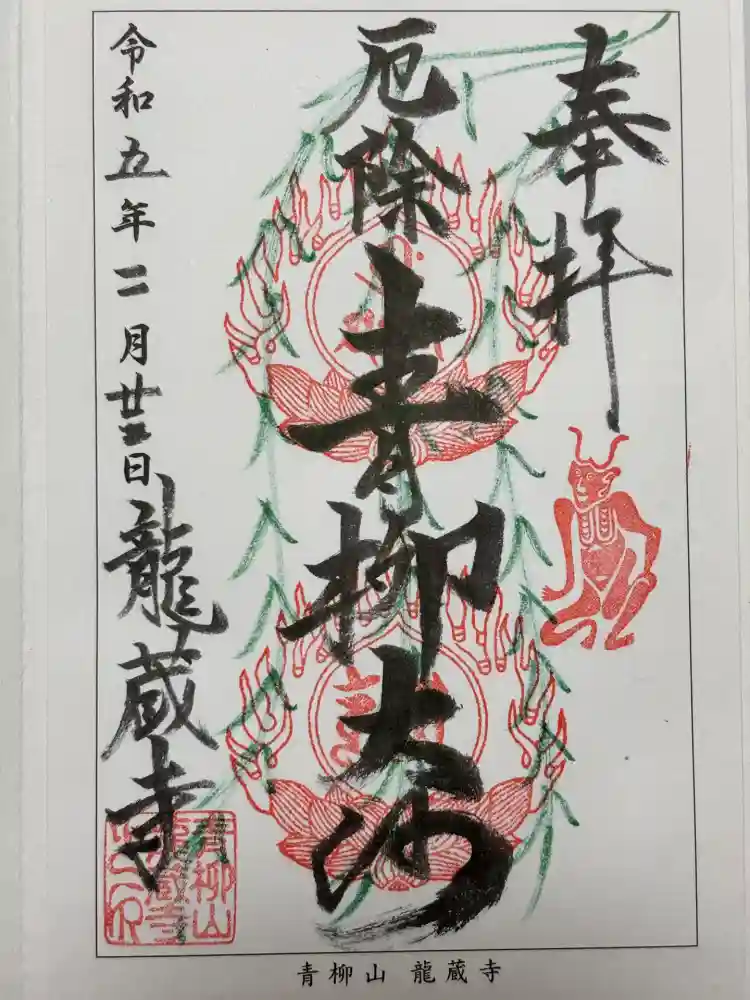 奉拝
厄除
青柳大師
令和五年二月廿三日
龍蔵寺
青柳山
龍蔵寺
之印
青柳山 龍蔵寺